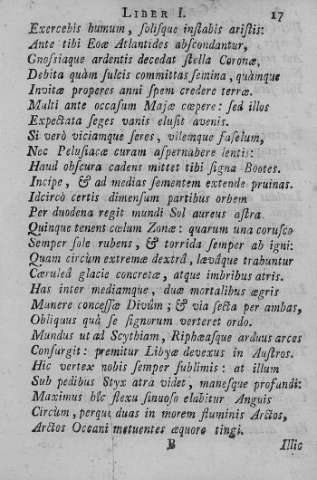 LIBER I. 17
Exercebis humum, ſoliſque inſtabis ariſtis:
Ante tibi Eoæ Atlantides abſcondantur,
Gnoſſiaque ardentis decedat ſtella Coronæ,
Debita quàm ſulcis committas ſemina, quàmque
Invitæ properes anni ſpem credere terræ.
Multi ante occaſum Majæ cœpere: ſed illos
Expectata ſeges vanis eluſit avenis.
Si verò viciamque ſeres, vilemque faſelum,
Nec Peluſiacæ curam aſpernabere lentis:
Haud obſcura cadens mittet tibi ſigna Bootes.
Incipe, & ad medias ſementem extende pruinas.
Idcircò certis dimenſum partibus orbem
Per duodena regit mundi Sol aureus aſtra.
Quinque tenent cœlum Zonæ: quarum una coruſco
Semper ſole rubens, & torrida ſemper ab igni:
Quam circùm extremæ dextrâ, lævâque trabuntur
Cæruleâ glacie concretæ, atque imbribus atris.
Has inter mediamque, duæ mortalibus ægris
Munere conceſſæ Divûm; & via ſecta per ambas,
Obliquus quâ ſe ſignorum verteret ordo.
Mundus ut ad Scythiam, Riphæaſque arduus arces
Conſurgit: premitur Libyæ devexus in Auſtros.
Hic vertex nobis ſemper ſublimis: at illum
Sub pedibus Styx atra videt, maneſque profundi:
Maximus hîc flexu ſinuoſo elabitur Anguis
Circùm, perque duas in morem fluminis Arctos,
Arctos Oceani metuentes æquore tingi.
B Illic